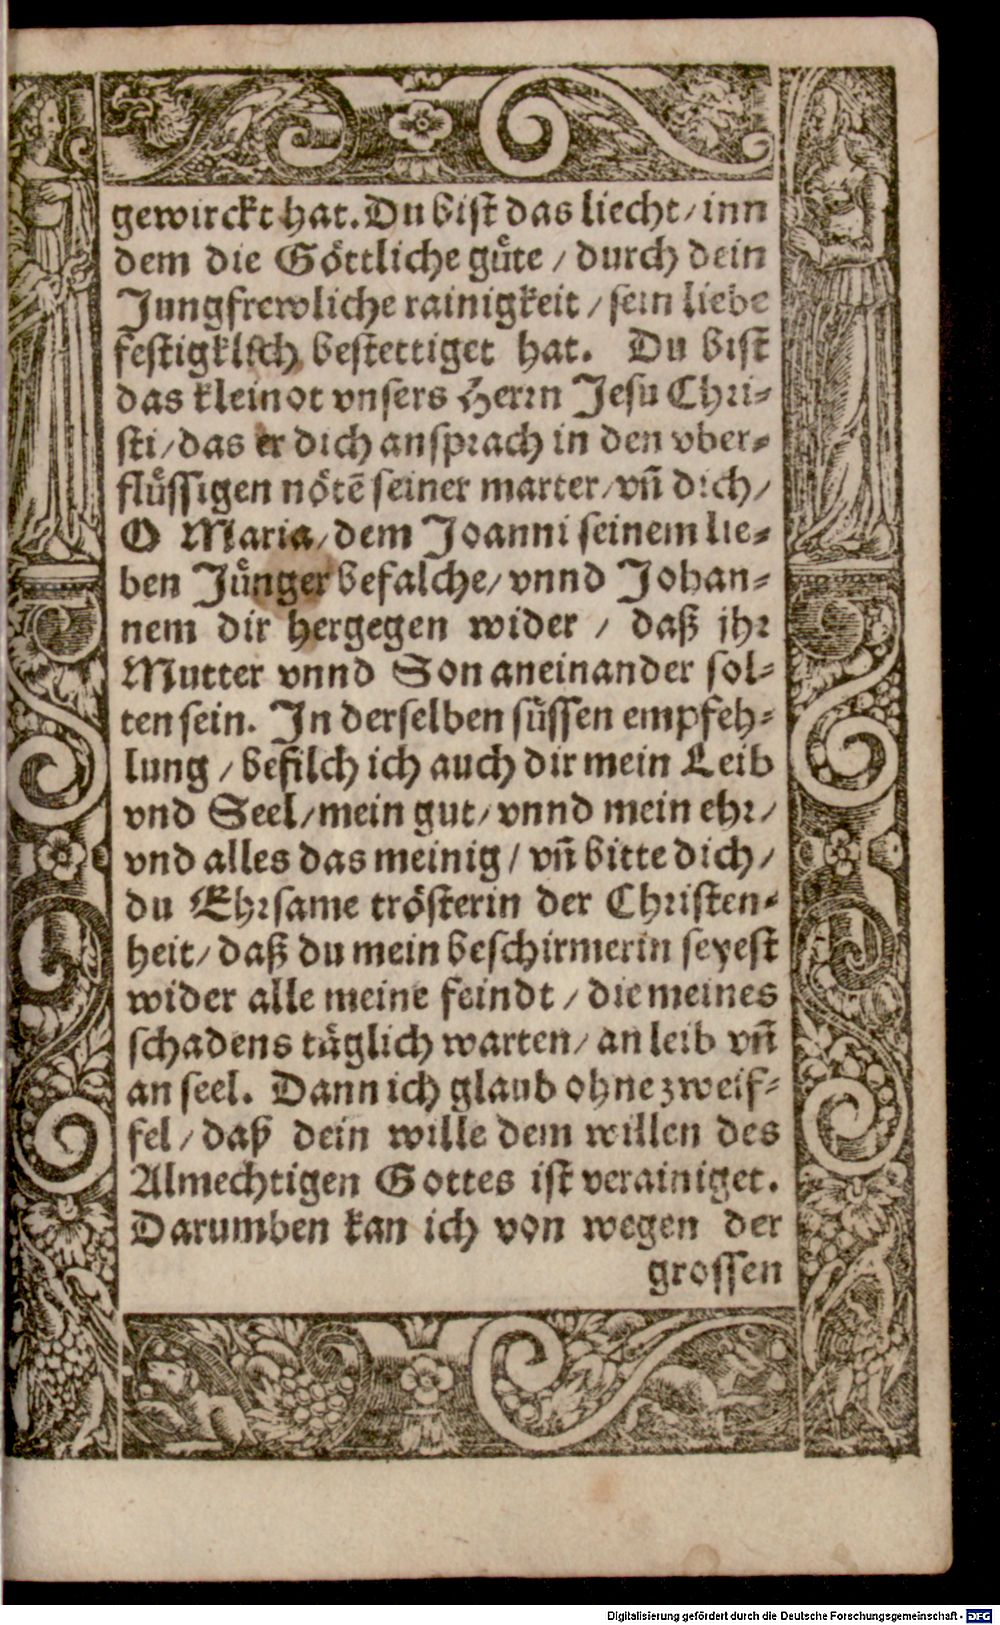 gewirckt hat. Du bist das liecht / inn
dem die Göttliche guͤte / durch dein
Jungfrewliche rainigkeit / sein liebe
festigklich bestettiget hat. Du bist
das kleinot vnsers Herrn Jesu Chri-
sti / das er dich ansprach in den vber-
fluͤssigen noͤtē seiner marter / vn̄ dich /
O Maria / dem Joanni seinem lie-
ben Juͤnger befalche / vnnd Johan-
nem dir hergegen wider / daß jhr
Mutter vnnd Son aneinander sol-
ten sein. In derselben suͤssen empfeh-
lung / befilch ich auch dir mein Leib
vnd Seel / mein gut / vnnd mein ehr /
vnd alles das meinig / vn̄ bitte dich /
du Ehrsame troͤsterin der Christen-
heit / daß du mein beschirmerin seyest
wider alle meine feindt / die meines
schadens taͤglich warten / an leib vn̄
an seel. Dann ich glaub ohne zweif-
fel / daß dein wille dem willen des
Almechtigen Gottes ist verainiget.
Darumben kan ich von wegen der
grossen
Digitalisierung gefördert durch die Deutsche Forschungsgemeinschaft - DFG